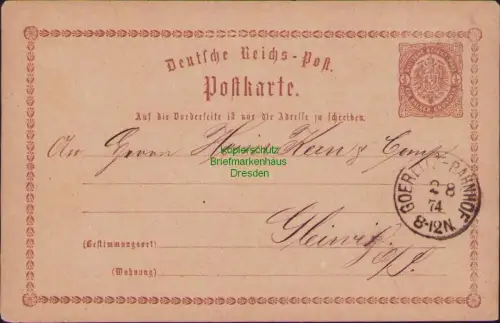 Deutsche Reichs-Post.
Postkarte.
Auf die Vorderseite ist nur die Adresse zu schreiben.
An Herrn Heinr. Kern & Comp
Kopierschutz
Briefmarkenhaus
Dresden
GOERLITZ-BAHNHOF
2 8
74
8-12N.
Gleiwitz
O/S.
(Bestimmungsort)
(Wohnung)